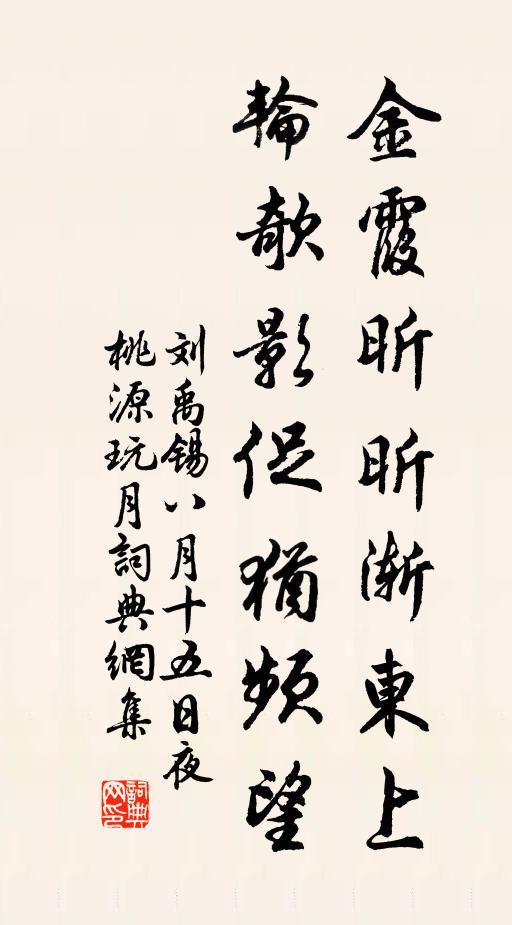 金霞昕昕漸東上
輪欹影促猶頻望
刘禹錫八月十五日夜
桃源玩月詞典網集
詞典
网印